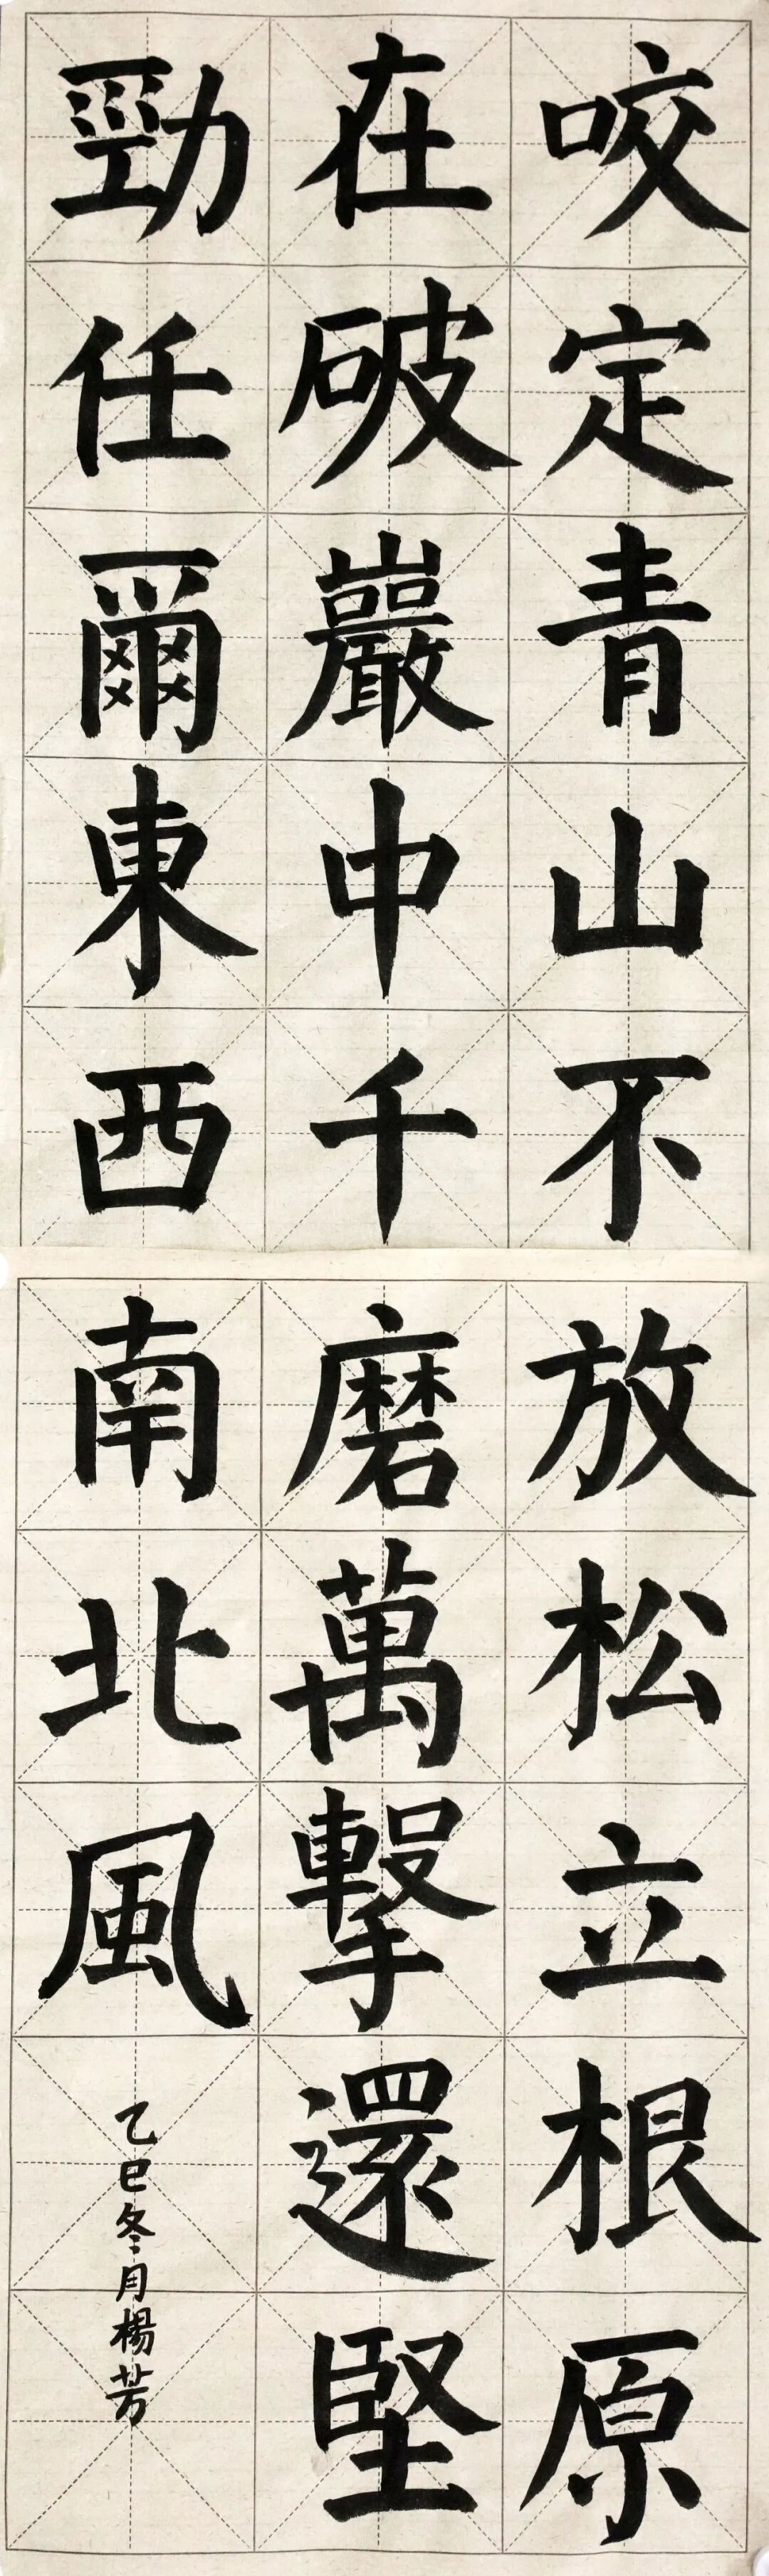 咬定青山不放松立根原
在破巖中千磨萬擊還堅
勁任爾東西南北風
乙巳冬月楊芳